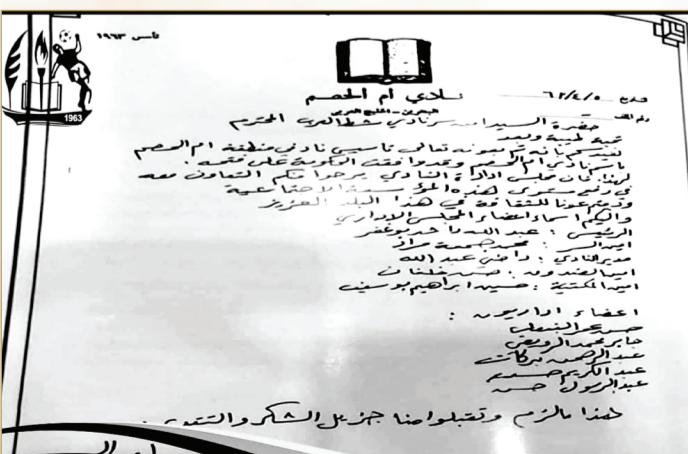 تأسس ١٩٦٣
1963
نادي أم الحصم
البحرين - الخليج العربي
تاريخ ٦٣/٤/٥
رقم الملف
حضرة السيد امين سر نادي شط العرب المحترم
تحية طيبة وبعد
نفيدكم بانه تم بعونه تعالى تأسيس نادي منطقة ام الحصم
باسم نادي ام الحصم وقد وافقت الحكومة على فتحه .
لهذا فان مجلس ادارة النادي يرجوا منكم التعاون معه
في رفع مستوى هذه المؤسسة الاجتماعية
للثقافة في هذا البلد العزيز
واليكم اسماء اعضاء المجلس الاداري
الرئيس : عبد الله ماجد بوغفر
امين السر : محمد جمعة مراد
مدير النادي : راضي عبد الله
امين الصندوق : حسن خلفان
امين المكتبة : حسين ابراهيم بوسيف
اعضاء اداريون :
حسن
جابر محمد
عبد الرحمن بركات
عبد الكريم حسن
عبد الرسول حسن
هذا مالزم وتقبلوا منا جزيل الشكر والتقدير .